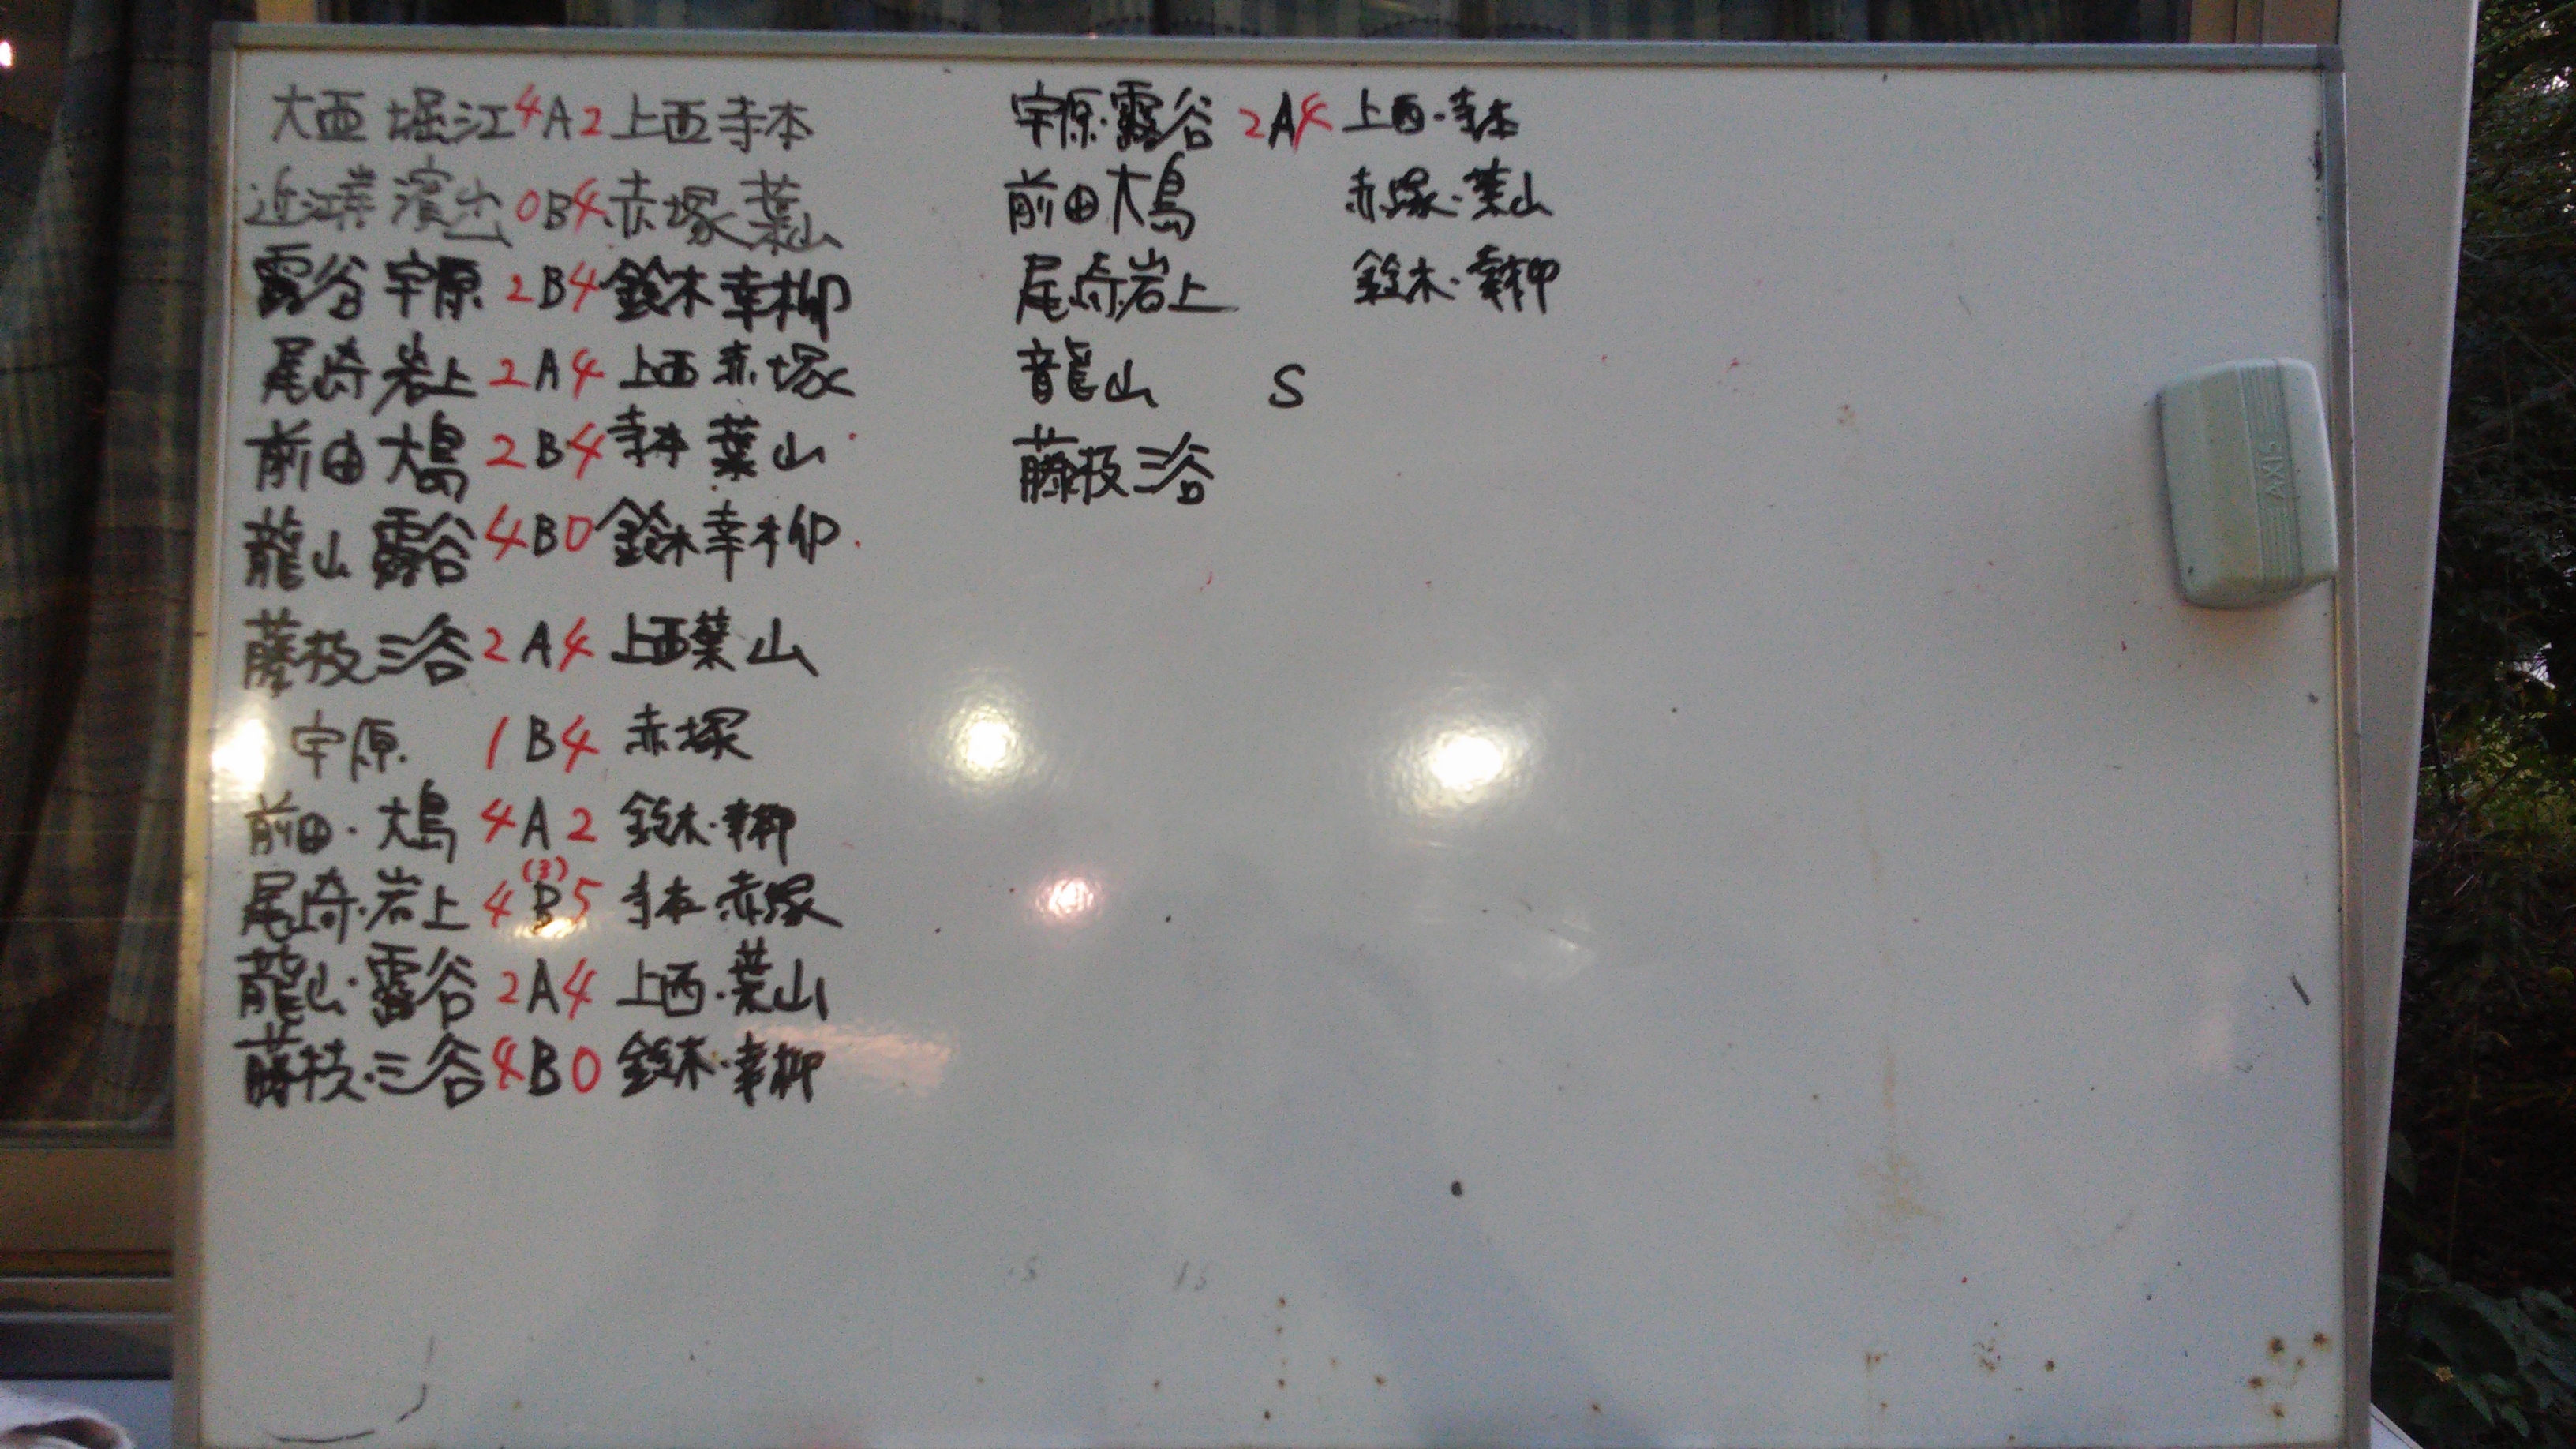 大西 堀江 4 A 2 上西 寺本
濱出 0 B 4 赤塚 葉山
露谷 宇原 2 B 4 鈴木 幸柳
尾崎 岩上 2 A 4 上西 赤塚
前田 大島 2 B 4 寺本 葉山
龍山 露谷 4 B 0 鈴木 幸柳
藤枝 三谷 2 A 4 上西 葉山
宇原 1 B 4 赤塚
前田・大島 4 A 2 鈴木・幸柳
尾崎・岩上 4 B(3) 5 寺本・赤塚
龍山・露谷 2 A 4 上西・葉山
藤枝・三谷 4 B 0 鈴木・幸柳
宇原・露谷 2 A 4 上西・寺本
前田 大島 赤塚・葉山
尾崎・岩上 鈴木・幸柳
龍山 S
藤枝 三谷
AXIS